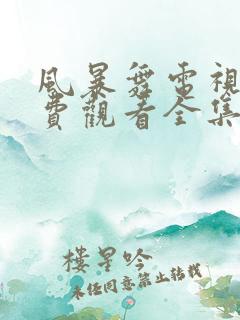 風暴舞電視
費觀看全集
樓星吟
未经同意禁止转载